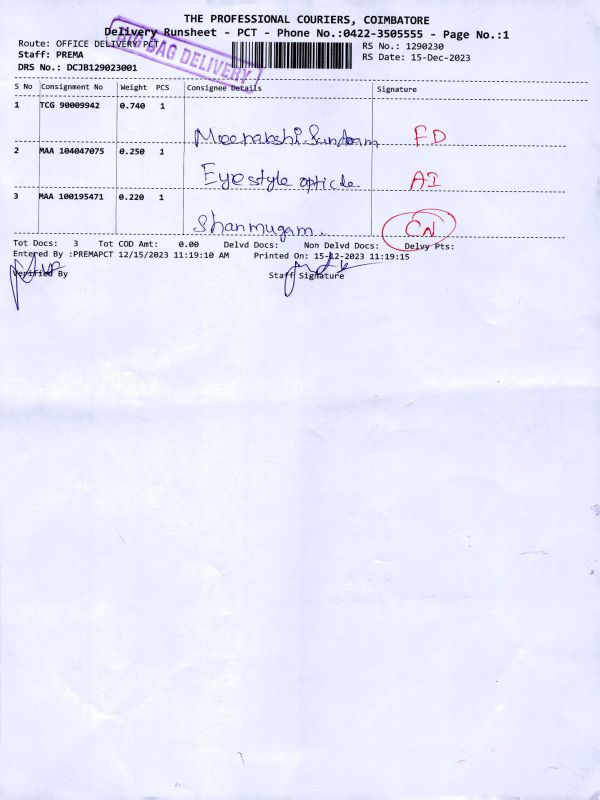 THE PROFESSIONAL COURIERS, COIMBATORE
Delivery Runsheet - PCT - Phone No.:0422-3505555 - Page No.:1
Route: OFFICE DELIVERY/PCT
RS No.: 1290230
Staff: PREMA
RS Date: 15-Dec-2023
DRS No.: DCJB129023001
BIG BAG DELIVERY
S No Consignment No Weight PCS Consignee Details Signature
1 TCG 90009942 0.740 1
Meenakshi Sundaram FD
2 MAA 104047075 0.250 1
Eyestyle AI
3 MAA 100195471 0.220 1
Shanmugam CN
Tot Docs: 3 Tot COD Amt: 0.00 Delvd Docs: Non Delvd Docs: Delvy Pts:
Entered By :PREMAPCT 12/15/2023 11:19:10 AM Printed On: 15-12-2023 11:19:15
Verified By Staff Signature